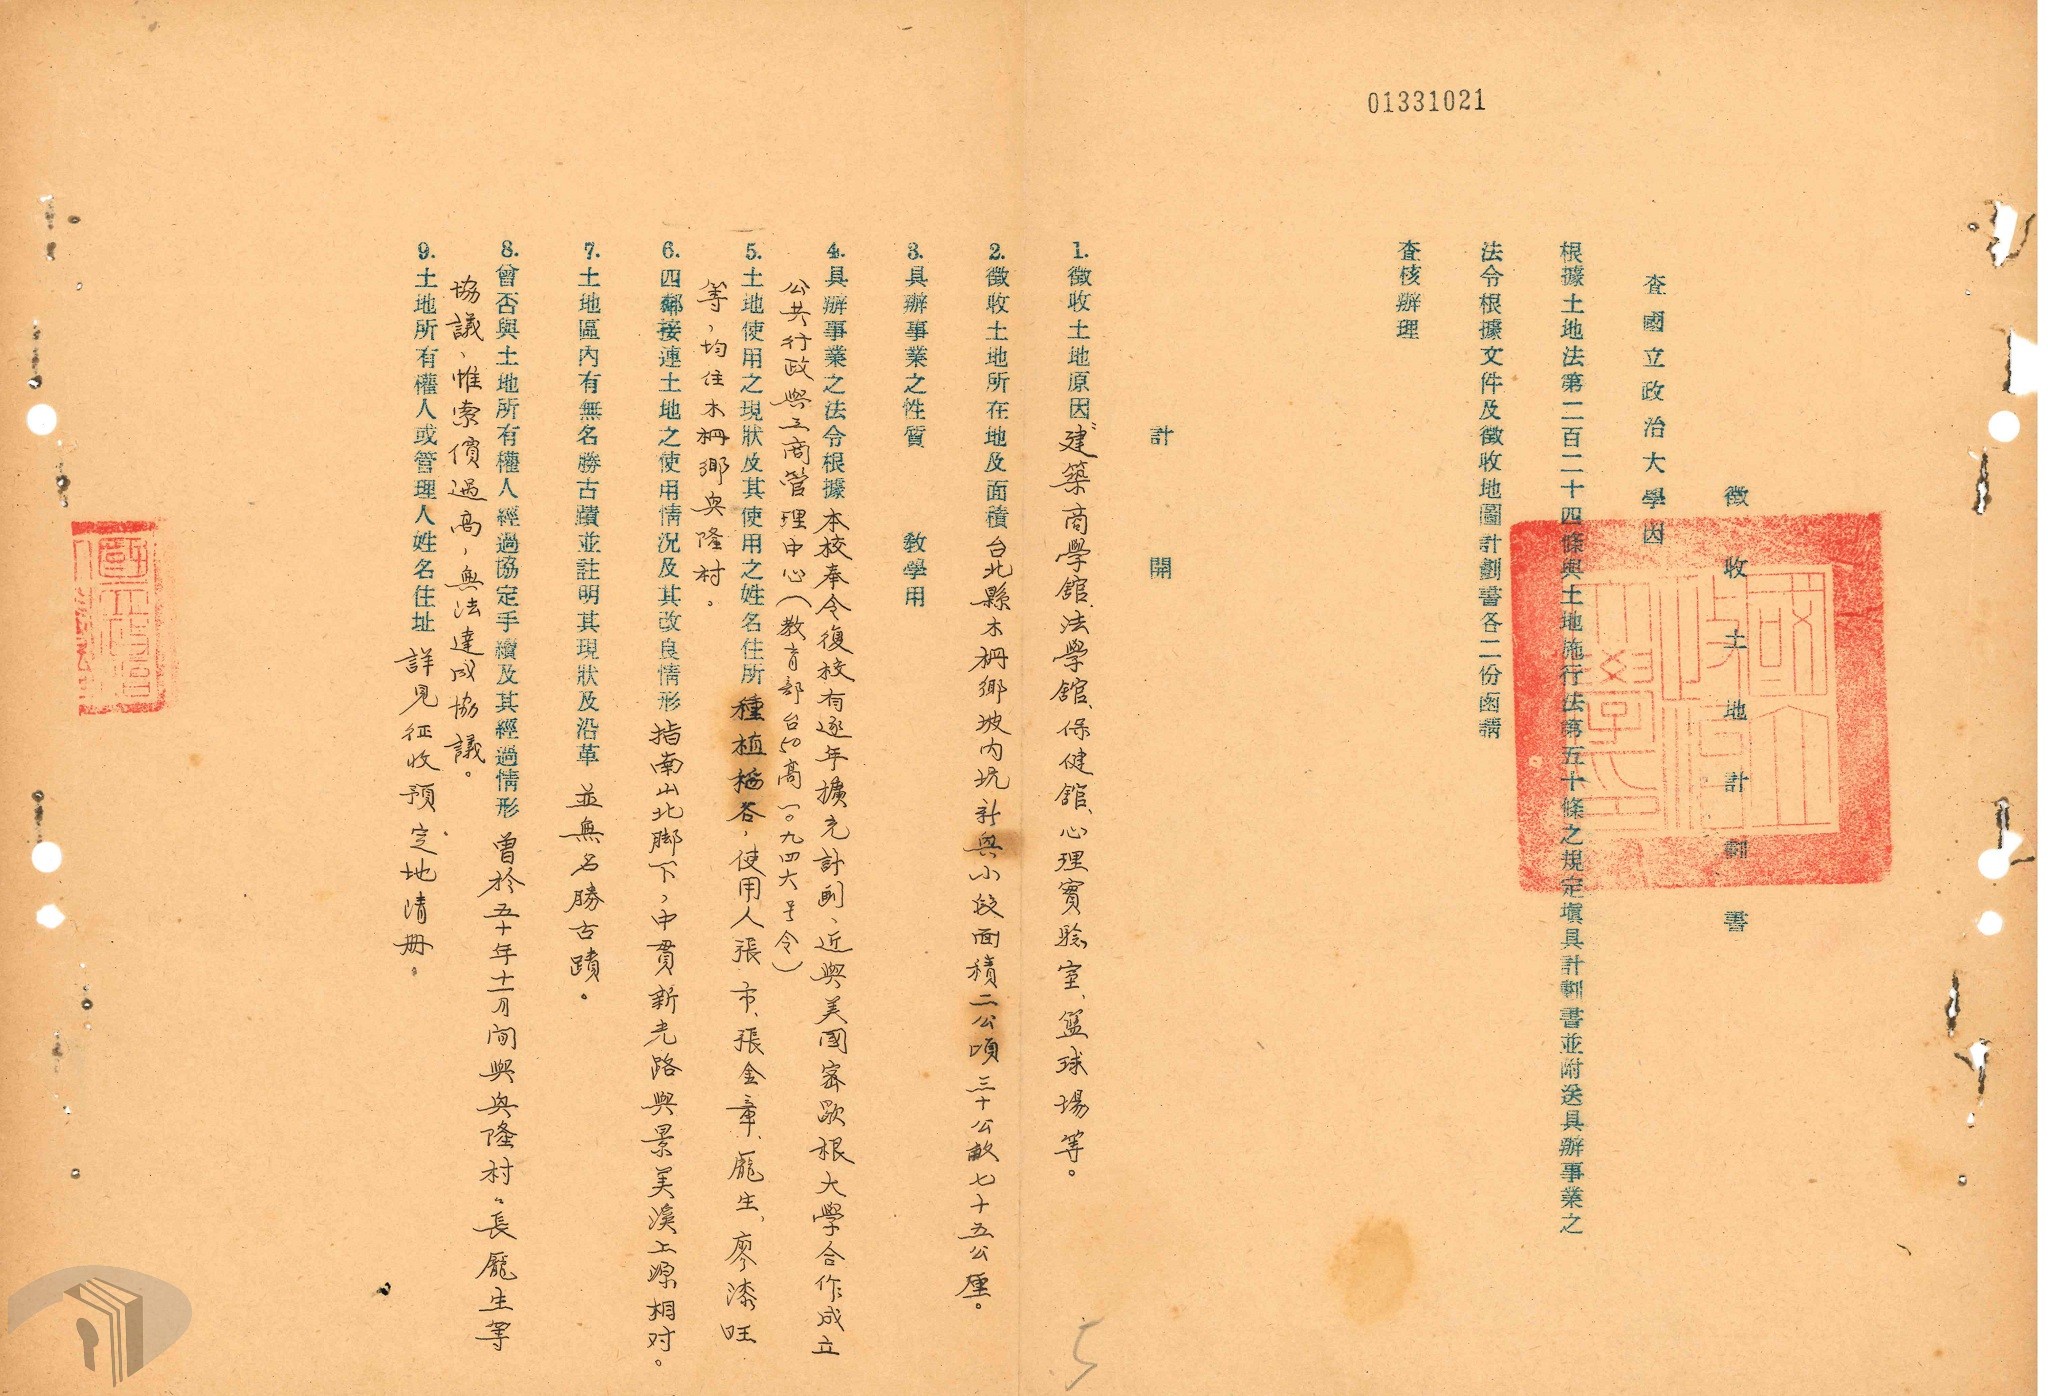 01331021
徵收土地計劃書
查國立政治大學因
根據土地法第二百二十四條與土地施行法第五十條之規定塡具計劃書並附送具辦事業之
法令根據文件及徵收地圖計劃書各二份函請
查核辦理
計開
1.徵收土地原因建築商學舘、法學舘、保健舘、心理實驗室、籃球場等。
2.徵收土地所在地及面積台北縣木柵鄉坡內坑新興小段面積二公頃三十公畝七十五公厘。
3.具辦事業之性質 敎學用
4.具辦事業之法令根據本校奉令復校有逐年擴充計劃、近與美國密歇根大學合作成立
公共行政與工商管理中心(教育部台50高一〇九四六号令)
5.土地使用之現狀及其使用之姓名住所種植稻谷,使用人張市、張金章、龐生、廖漆旺
等,均住木柵鄉興隆村。
6.四鄰接連土地之使用情況及其改良情形指南山北脚下,中貫新光路與景美溪上源相对。
7.土地區內有無名勝古蹟並註明其現狀及沿革 並無名勝古蹟。
8.曾否與土地所有權人經過協定手續及其經過情形 曾於五十年十一月間與興隆村村長龐生等
協議、惟索價過高,無法達成協議。
9.土地所有權人或管理人姓名住址 詳見征收預定地清册。
國立政治大學印
5